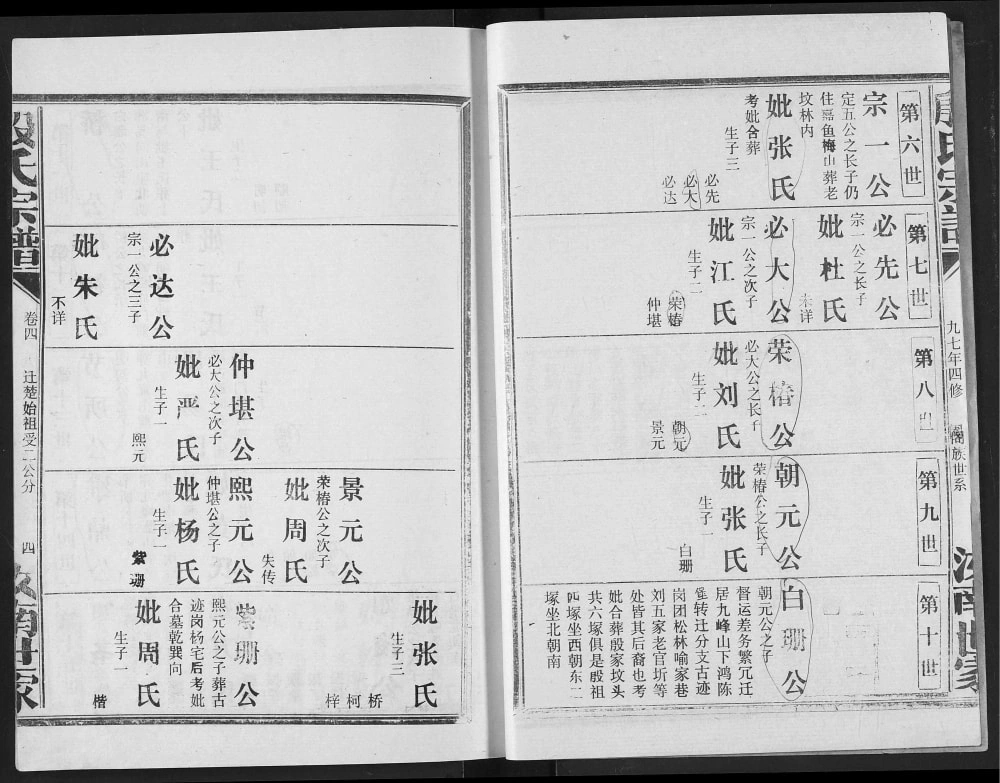 殷氏宗譜
九七年四修
族世系
汝南世家
第六世
宗一公
定五公之长子仍
住嘉鱼梅山葬老
坟林内
妣张氏
考妣合葬
生子三
必先
必大
必达
第七世
必先公
宗一公之长子
妣杜氏
未详
必大公
宗一公之次子
妣江氏
生子二
荣椿
仲堪
第八世
荣椿公
必大公之长子
妣刘氏
生子二
朝元
景元
第九世
朝元公
荣椿公之长子
妣张氏
生子一
白珊
第十世
白珊公
朝元公之子
督运差务繁冗迁
居九峰山下鸿陈
转迁分支古迹
岗团松林喻家巷
刘五家老官圻等
处皆其后裔也考
妣合葬殷家坟头
共六塚俱是殷祖
四塚坐西朝东二
塚坐北朝南
妣张氏
生子三
桥
柯
梓
必达公
宗一公之三子
妣朱氏
不详
仲堪公
必大公之次子
妣严氏
生子一
熙元
景元公
荣椿公之次子
妣周氏
失传
熙元公
仲堪公之子
妣杨氏
生子一
紫珊
紫珊公
熙元公之子葬古
迹岗杨宅后考妣
合墓乾巽向
妣周氏
生子一
楷
殷氏宗譜
卷四
迁楚始祖受二公分
四
汝南世家